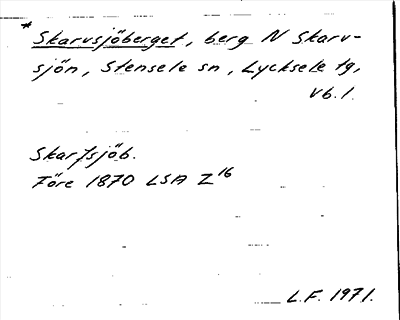 * Skarvsjöberget, berg N Skarv-
sjön, Stensele sn, Lycksele tg,
Vb.l.
Skarfsjöb.
Före 1870 LSA Z16
L.F. 1971.